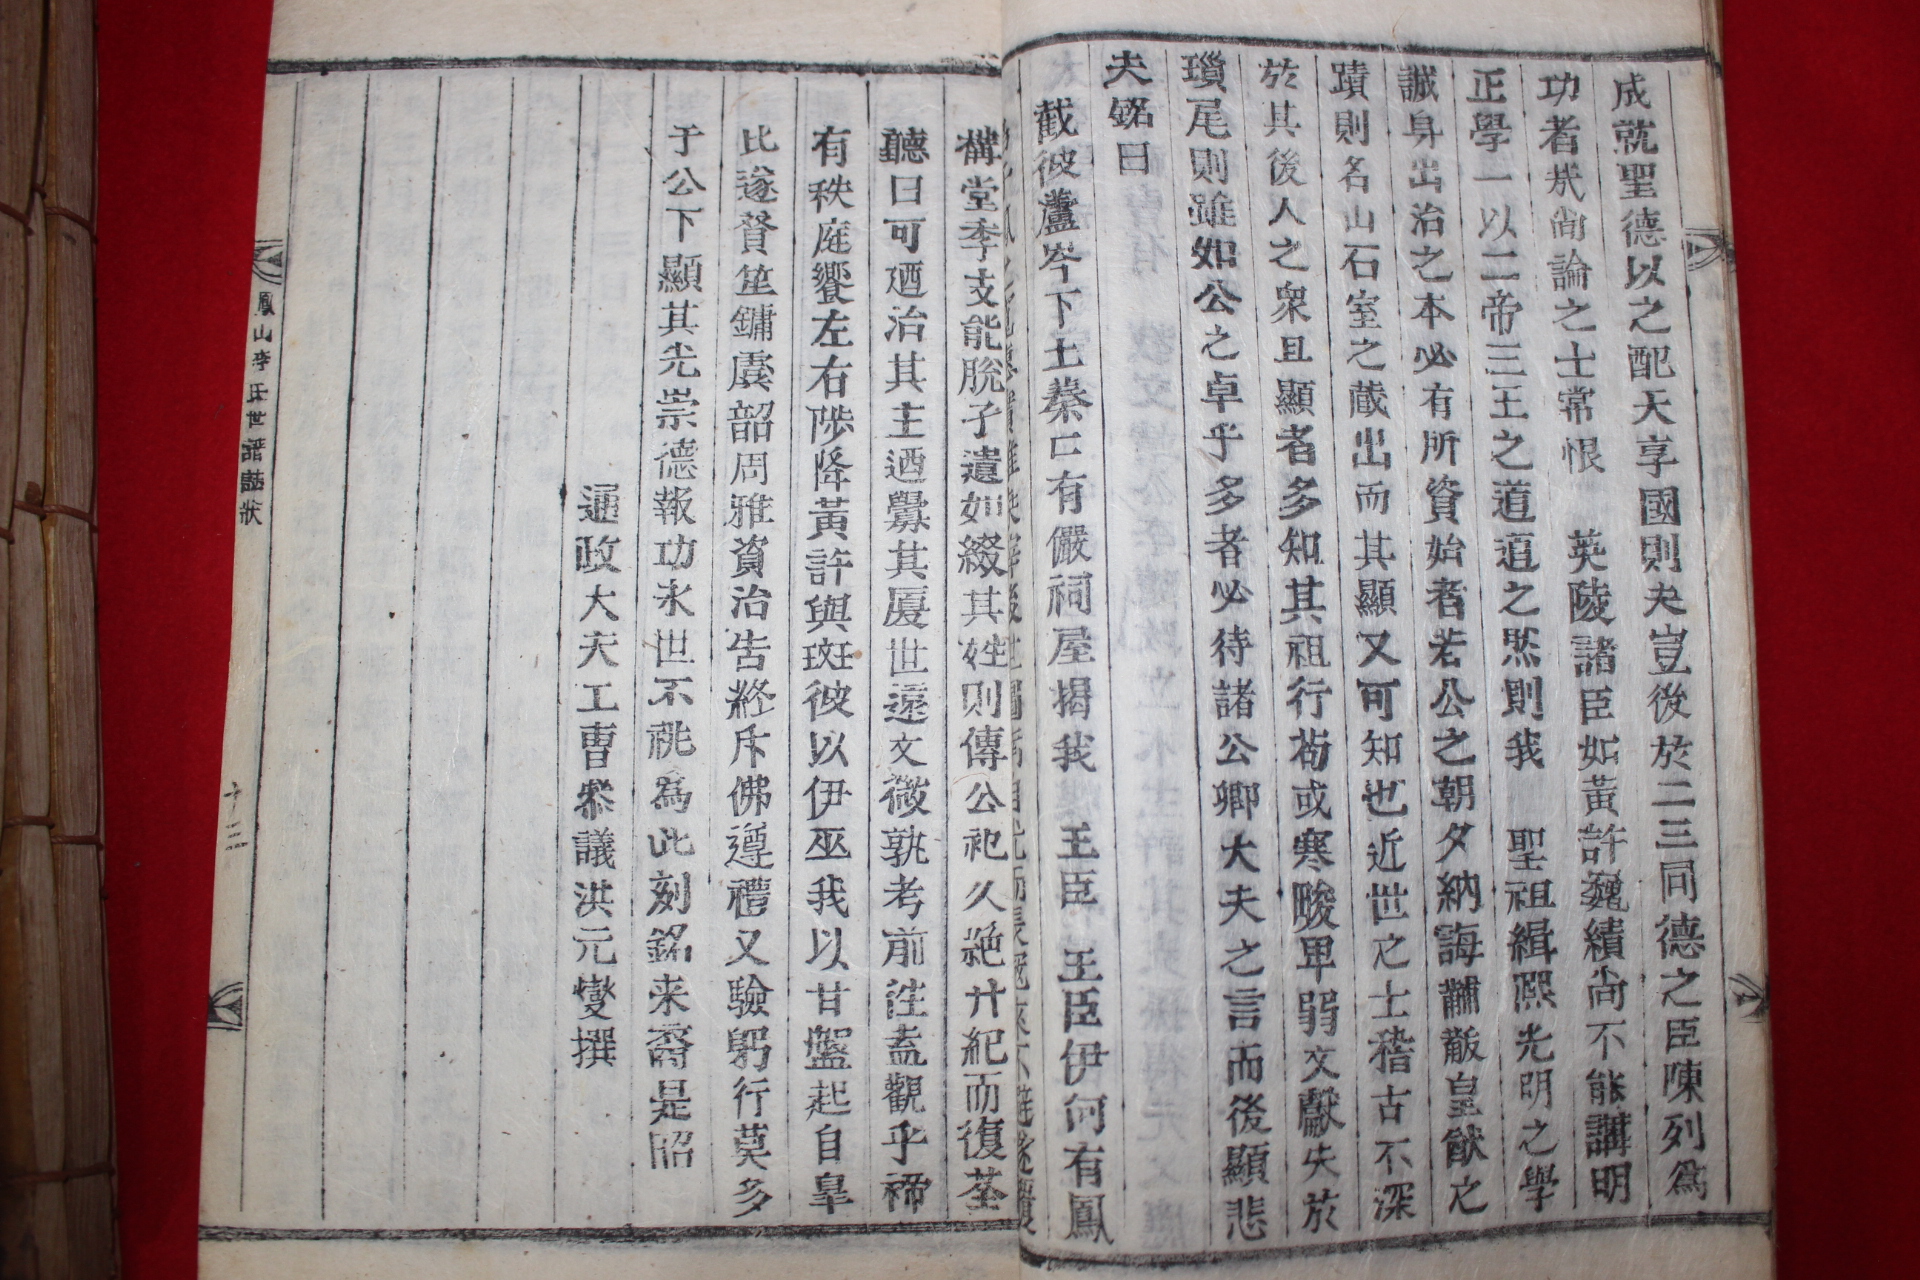 成就聖德以之配天享國則夫豈後於二三同德之臣陳列爲
功者哉尙論之士常恨 英陵諸臣如黃許巍績尙不能講明
正學一以二帝三王之道道之然則我 聖祖緝熙光明之學
誠身出治之本必有所資始者若公之朝夕納誨黼黻皇猷之
蹟則名山石室之藏出而其顯又可知也近世之士稽古不深
於其後人之衆且顯者多知其祖行苟或寒畯卑弱文獻失於
瑣尾則雖如公之卓乎多者必待諸公卿大夫之言而後顯悲
夫銘曰
截彼蘆岑下土藁口有儼祠屋揭我 王臣 王臣伊何有鳳
構堂季支能脫孑遺如綴其姓則傳公祀久絶廿紀而復荃
聽曰可廼治其主迺釁其厦世遠文微孰考前徃盖觀乎禘
有秩庭饗左右陟降黃許與斑彼以伊巫我以甘盤起自皐
比遂贊笙鏞虞韶周雅資治告終斥佛遵禮又驗躬行莫多
于公下顯其光崇德報功永世不祧為此刻銘来裔是昭
通政大夫工曹叅議洪元燮撰
鳳山李氏世譜誌狀
十三